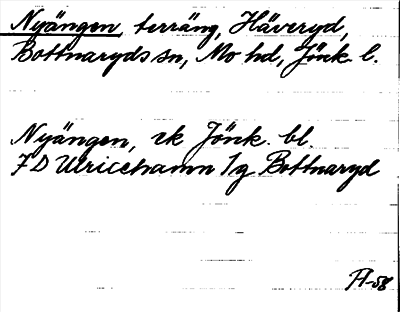 Nyängen, terräng, Häveryd,
Bottnaryds sn, Mo hd, Jönk. l.
Nyängen, ek Jönk. bl.
7 D Ulricehamn 1 g Bottnaryd
Fl-58